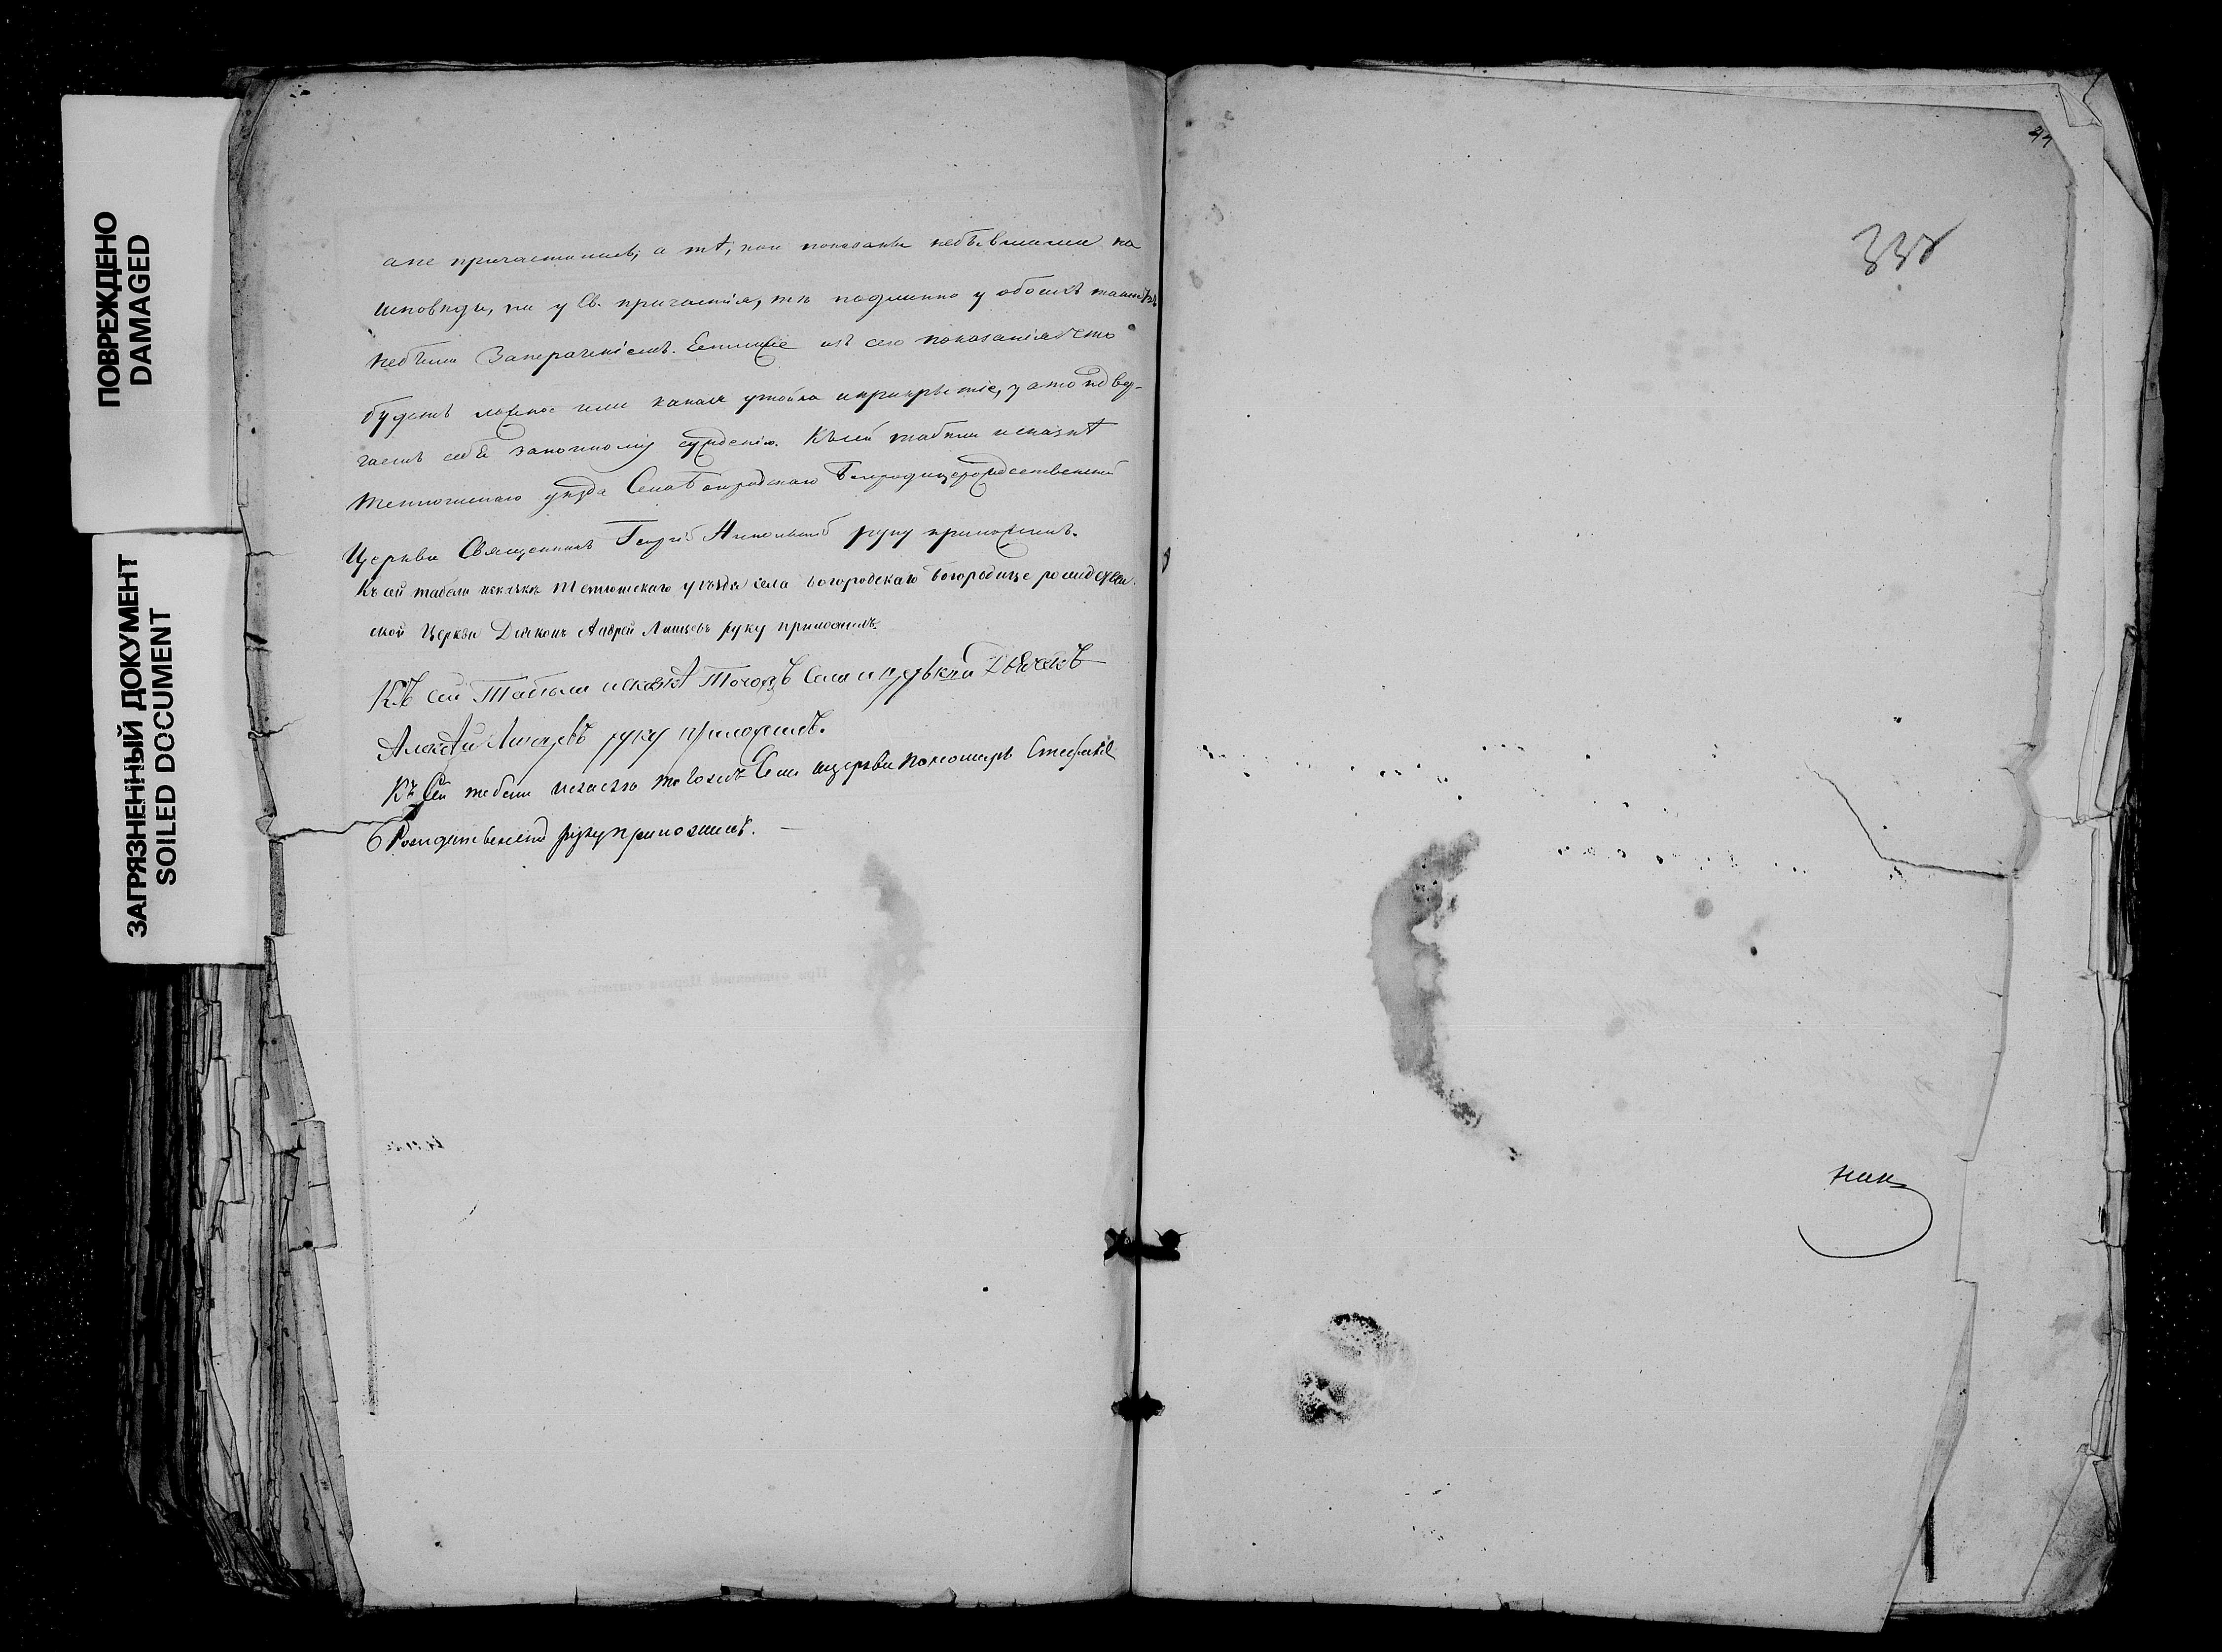 ПОВРЕЖДЕНО
DAMAGED
ЗАГРЯЗНЕННЫЙ ДОКУМЕНТ
SOILED DOCUMENT
а не причастились; а тѣ, кои показаны небывшими на
исповѣди, ни у Св. причастія, тѣ подлинно у обоихъ таинствъ
небыли за нераченіемъ. Естьлиже изъ сего показанія что
будетъ ложное или какая утайка и прикрытіе, за то подвер-
гаемъ себя законному сужденію. Къ сей табели и сказкѣ
Тетюшскаго уѣзда Села Богородскаго Богородицерождественской
Церкви Священникъ Георгій Никольскій руку приложилъ.
Къ сей табели и сказкѣ Тетюшскаго уѣзда села Богородскаго Богородице рождествен
ской Церкви Діаконъ Андрей руку приложилъ.
Къ сей Табели и сказкѣ Тогожъ Села и церькви Дьячекъ
Алексѣй руку приложилъ.
Къ Сей табели и сказкѣ тогожъ Села и церкви Пономарь Стефанъ
Рождественскій руку приложилъ.
338
ник